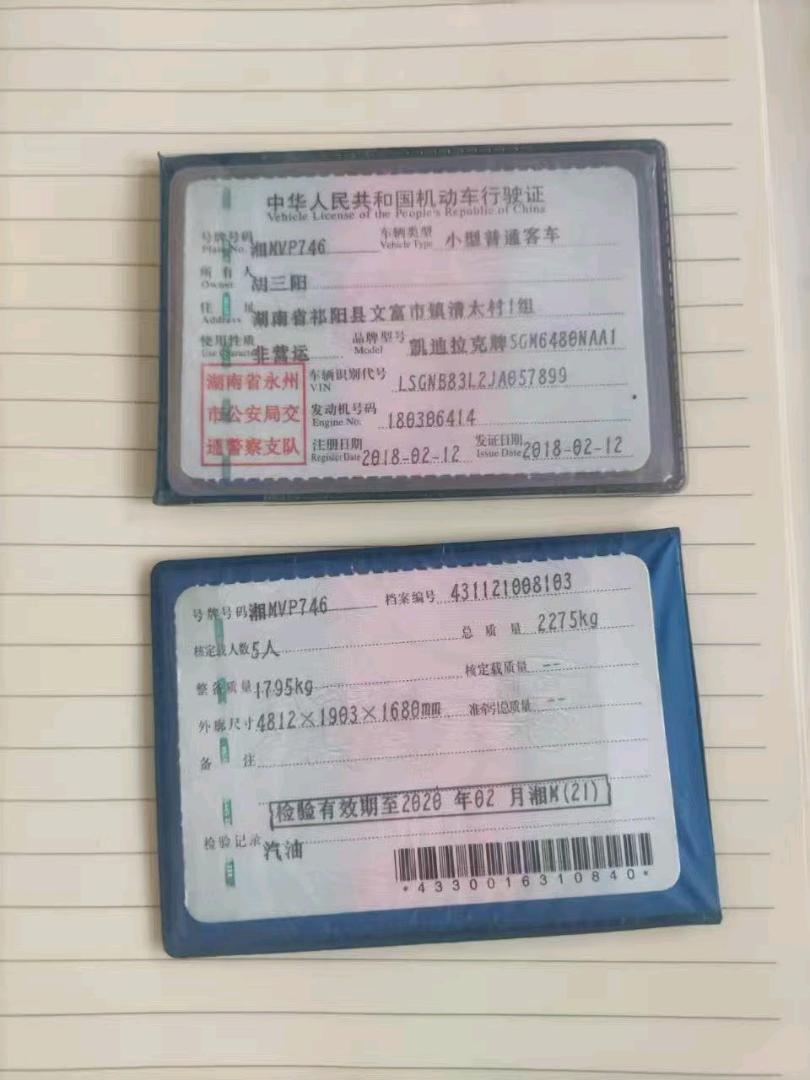 中华人民共和国机动车行驶证
Vehicle License of the People's Republic of China
号牌号码 湘MVP746 车辆类型 小型普通客车
Plate No. Vehicle Type
所有人 胡三阳
Owner
住址 湖南省祁阳县文富市镇清太村1组
Address
使用性质 非营运 品牌型号 凯迪拉克牌SGM6480NAA1
Use Character Model
湖南省永州
市公安局交
通警察支队
车辆识别代号 LSGNB83L2JA057899
VIN
发动机号码 180306414
Engine No.
注册日期 2018-02-12 发证日期 2018-02-12
Register Date Issue Date
号牌号码 湘MVP746 档案编号 431121008103
核定载人数 5人 总质量 2275kg
整备质量 1795kg 核定载质量 --
外廓尺寸 4812×1903×1680mm 准牵引总质量 --
备注
检验有效期至2020年02月湘M(21)
检验记录 汽油
*4330016310840*